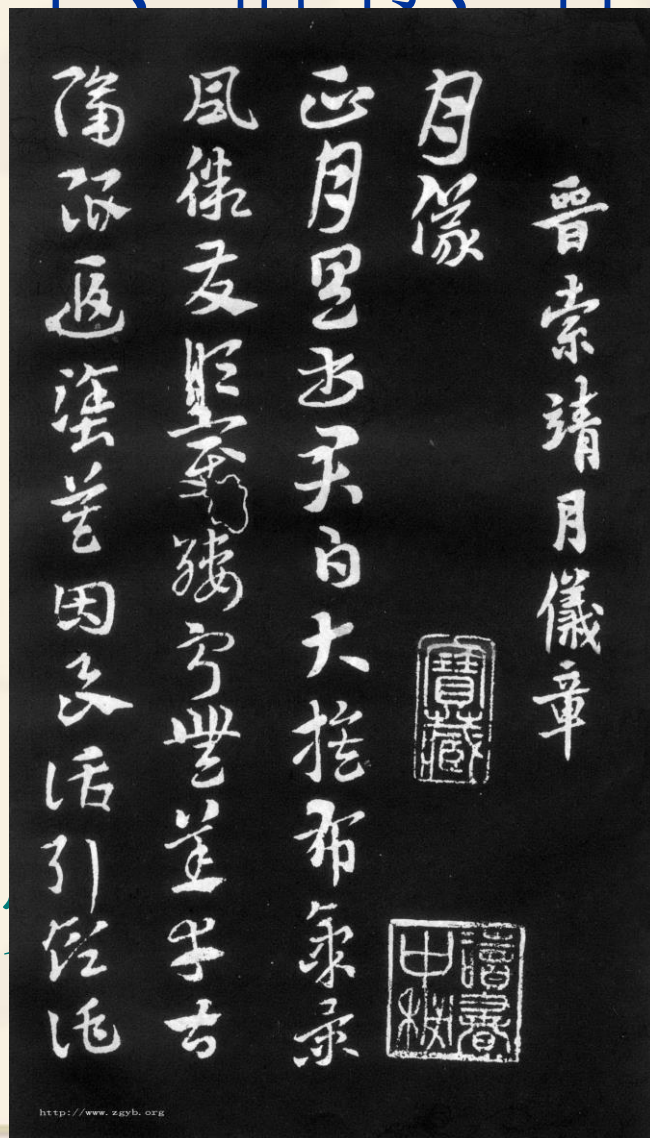 晉索靖月儀章
月儀
寶藏
讀書中秘
正月具書君白大蔟布氣景
風微發順變綏寧無恙幸甚
隔限遐塗莫因良話引領託
http://www.zgyb.org